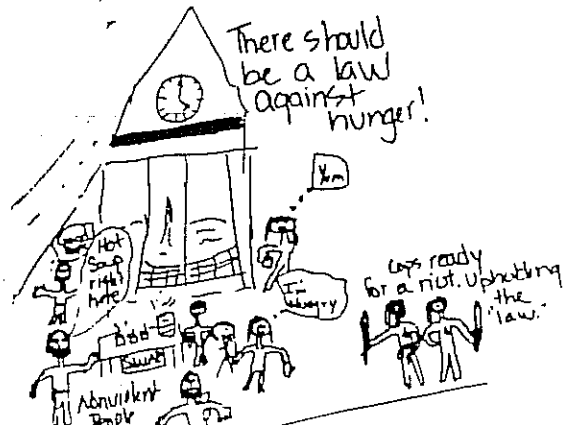 There should
be a law
against
hunger!
Yum
Food
Hot
Soup
right
here
I'm
Hungry
Cops ready
for a riot. Upholding
the
"law."
Soup
Nonviolent
People